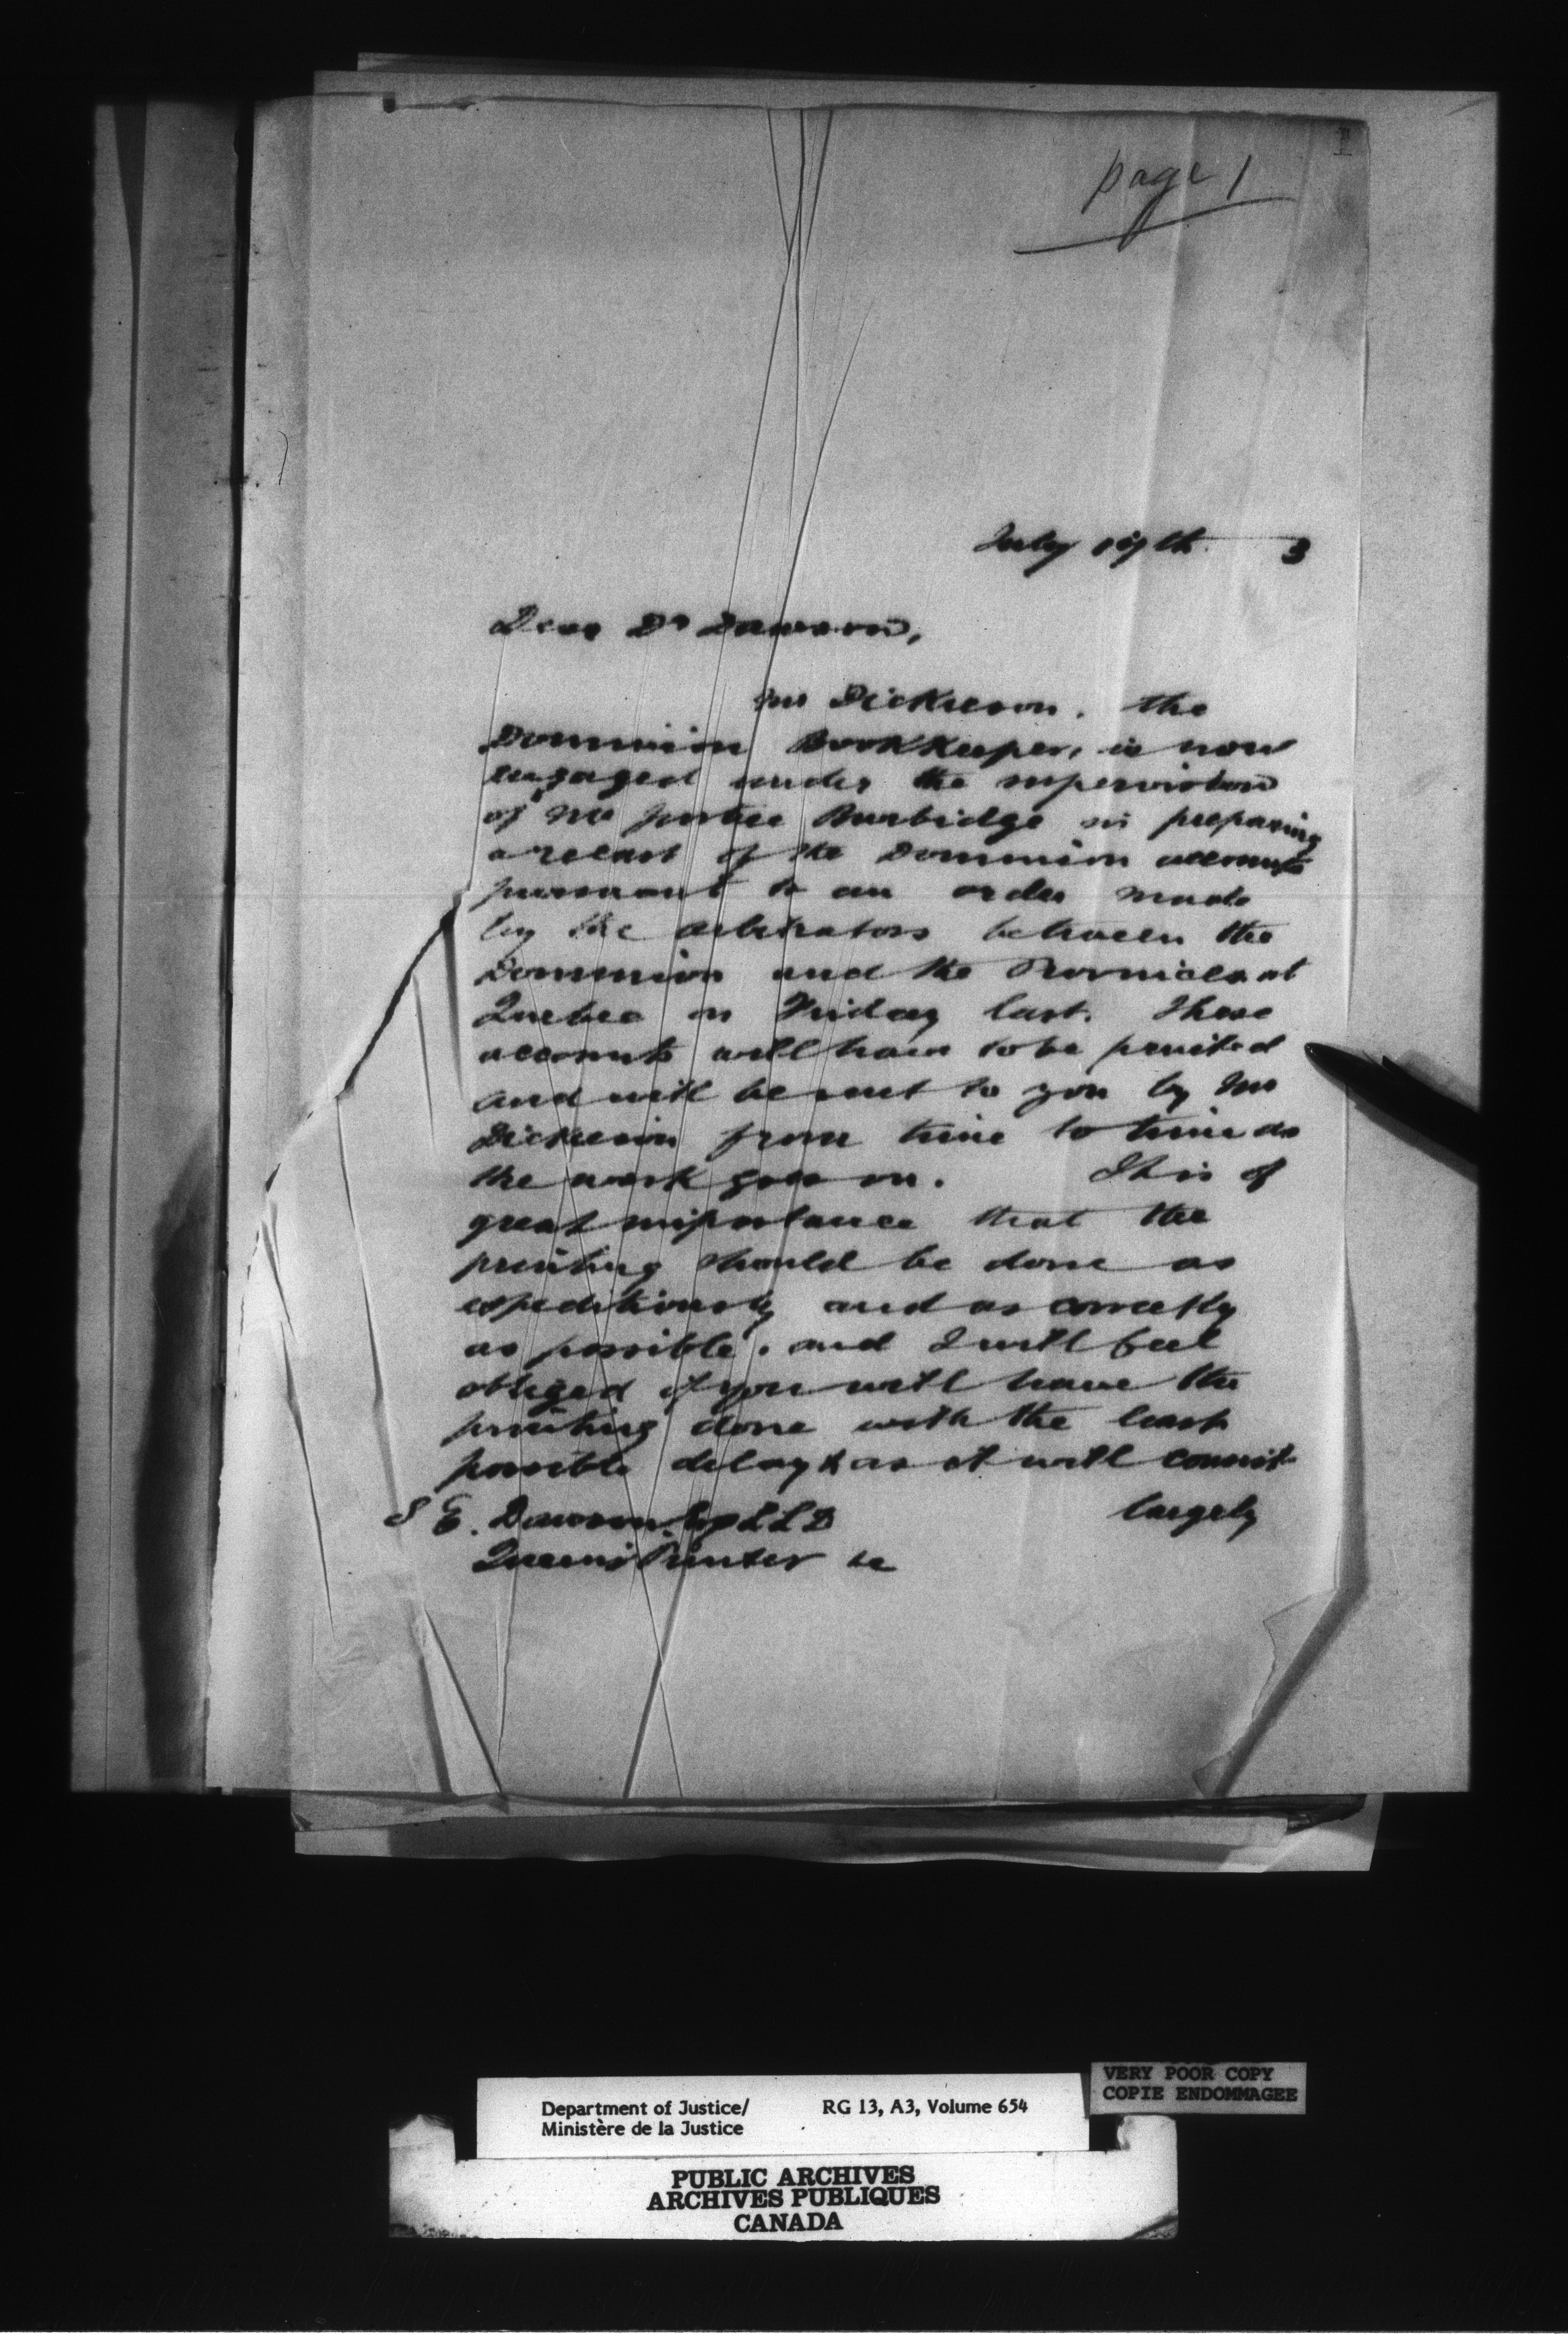 page 1
July 19th 3
Dear Dr Dawson,
Mr Dickieson, the
Dominion Bookkeeper, is now
engaged under the supervision
of Mr Justice Burbidge in preparing
a recast of the Dominion accounts
pursuant to an order made
by the arbitrators between the
Dominion and the Provinces at
Quebec on Friday last. These
accounts will have to be printed
and will be sent to you by Mr
Dickieson from time to time as
the work goes on. It is of
great importance that the
printing should be done as
expeditiously and as correctly
as possible, and I will feel
obliged if you will have the
printing done with the least
possible delay & as it will consist
largely
S E. Dawson Esq LLD
Queen's Printer &c
VERY POOR COPY
COPIE ENDOMMAGEE
Department of Justice/ RG 13, A3, Volume 654
Ministère de la Justice
PUBLIC ARCHIVES
ARCHIVES PUBLIQUES
CANADA